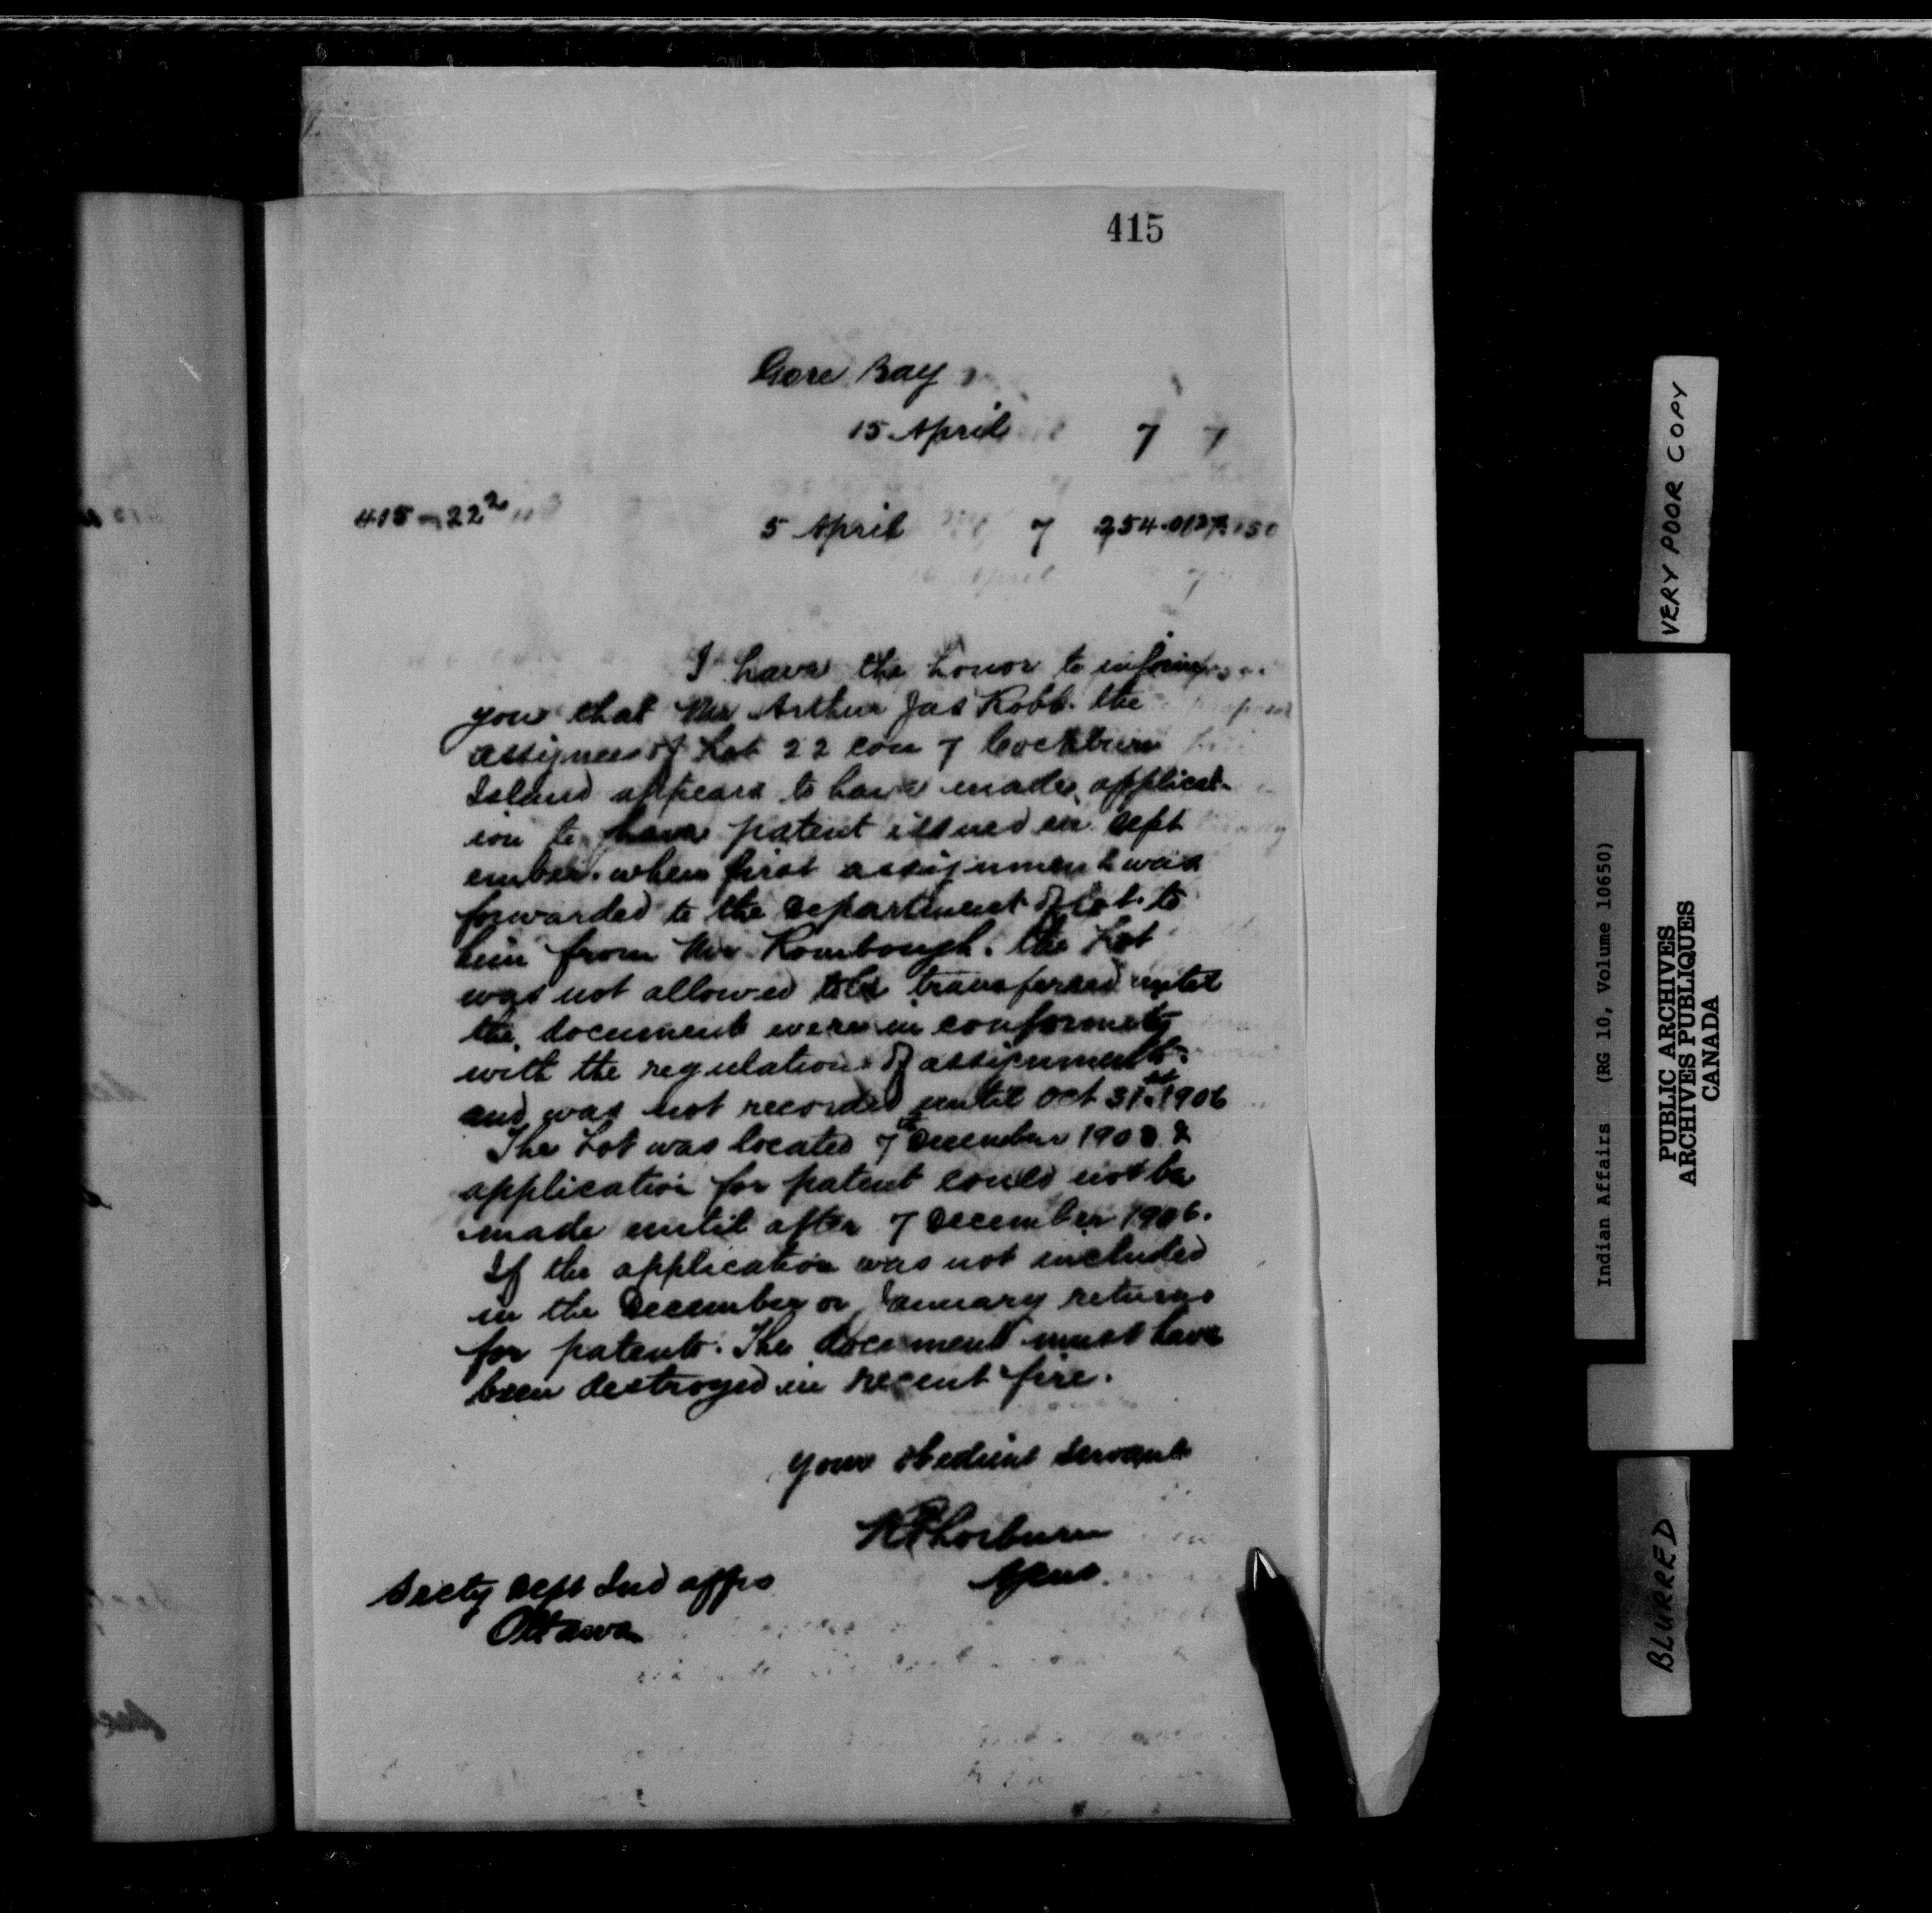 415
Gore Bay
15 April 7 7
415-22²
5 April 7 254.012
I have the honor to inform
you that Mr Arthur Jas Robb. the
assignee of Lot 22 con 7 Cockburn
Island appears to have made applicat-
ion to have patent issued in Sept
ember. when first assignment was
forwarded to the Department of Lot. to
him from Mr Rombough. the Lot
was not allowed to be transferred until
the document were in conformity
with the regulations of assignments
and was not recorded until Oct 31st 1906
The Lot was located 7th December 190 &
application for patent could not be
made until after 7 December 1906.
If the application was not included
in the December or January returns
for patents. The document must have
been destroyed in recent fire.
Your obedient Servant
Thorburn
Agent.
Secty Dept Ind Affrs
Ottawa
VERY POOR COPY
Indian Affairs (RG 10, Volume 10650)
PUBLIC ARCHIVES
ARCHIVES PUBLIQUES
CANADA
BLURRED